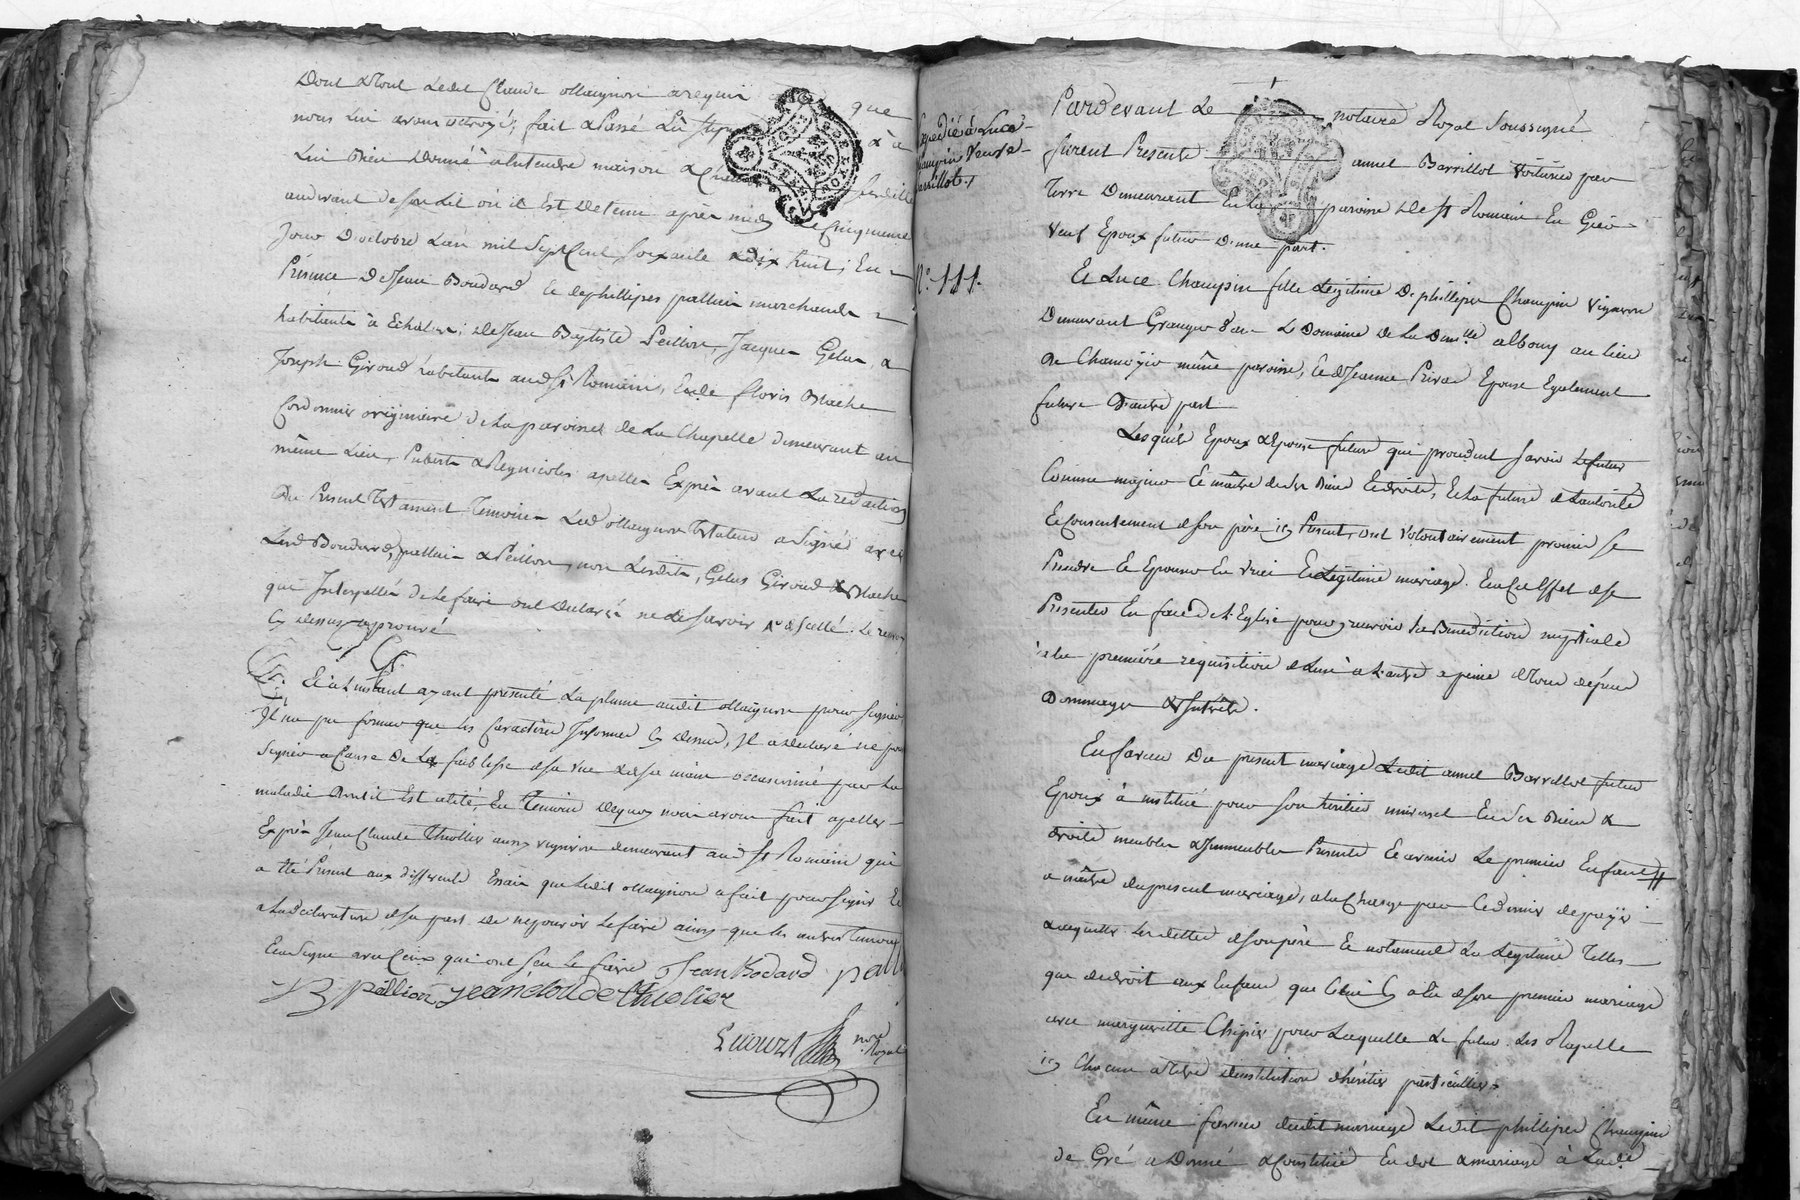 Dont & Tout Ledit Claude Maignon a requis que
nous lui avons octroyé, fait & Passé & à
Lui Bien Donné à entendre maison
audevant de son Lit où il Est Detenu après midy Le Cinquieme
Jour D'octobre L'an mil Sept Cent Soixante & dix huit ; En
Présence De Jean Boudard & de phillipes pattin marchands
habitants à Echalas, de Jean Baptiste Peillon, Jacques Gelas, &
Joseph Giroud habitants aud St Romain, & de floris
Cordonnier originaire de La paroisse de La Chapelle demeurant au
même Lieu, Puberts & Regnicoles apellés Exprès avant La redaction
Du Présent Testament Temoins Led Maignon Testateur a Signé avec
Lesd Boudard, pattin & Peillon, non Lesdits, Gelas Giroud &
qui Interpellés de Le faire ont Declaré ne Le Savoir
Cy Dessus approuvé
Et à L'instant ayant presenté La plume audit Maignon pour Signer
Il n'a pu former que les Caractères Informes Cy Dessus, Il a declaré ne pouv
Signer a Cause De La faiblesse de sa vue & de sa main occasionné par La
maladie dont il Est alité, En Temoin Dequoy nous avons fait apeller
Exprès Jean Claude Thiollier aussy vigneron demeurant aud St Romain qui
a été Présent aux differents Essais que Ledit Maignon a fait pour Signer Et
a La declaration de sa part de ne pouvoir Le faire ainsy que les autres Temoins
Et a Signé avec Ceux qui ont Sçu Le faire Jean Bodard patt
JB peillon jean cloude thiolier
notre Royal
Expedié à Luce
Champin Veuve
Barrillot
N° 111.
Pardevant Le notaire Royal Soussigné
furent Presents annet Barrillot Voiturier par
Terre Demeurant En La paroisse De St Romain En Gier
Veuf Epoux futur D'une part.
Et Luce Champin fille Légitime De phillipe Champin Vigneron
Demeurant Granger dans Le Domaine De La Dem.lle albouy au lieu
De même paroisse, & de Jeanne Privas Epouse Egalement
future D'autre part
Lesquels Epoux & Epouse futurs qui procedent Savoir Le futur
Comme majeur Et maître de Ses Biens & droits, Et La future de L'autorité
Et Consentement de Son père icy Présent, ont Volontairement promis Se
Prendre & Epouser En vrai & Légitime mariage. En Cet Effet de Se
Presenter En face de L'Eglise pour y recevoir La Benediction nuptiale
à la première requisition de L'un à L'autre à peine de Tous depens
Dommages & Intérêts.
En faveur Du présent mariage Ledit annet Barrillot futur
Epoux à institué pour Son héritier universel En Ses Biens &
droits meubles & Immeubles Présents Et avenir Le premier Enfant
a naître du présent mariage, à la Charge par Ce dernier de payer
& acquitter Les dettes de Son père Et notamment La Légitime Telles
que de droit aux Enfans que Celui Cy a Eu de Son premier mariage
avec marguerite Chipier pour Laquelle Le futur Les Rapelle
icy Chacun à Titre d'institution d'héritier particulier.
En même faveur dudit mariage Ledit phillipe Champin
de Gré a Donné & Constitué En dot & mariage à Ladte